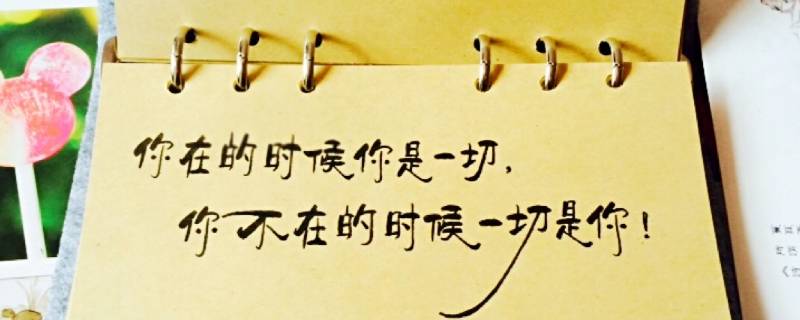 你在的时候你是一切，
你不在的时候一切是你！